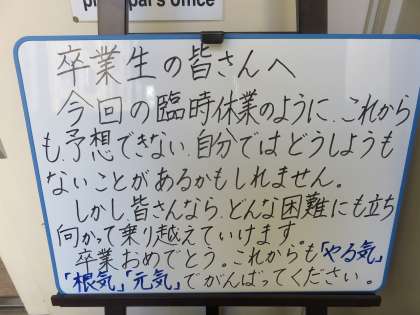 principal's office
卒業生の皆さんへ
今回の臨時休業のように、これから
も、予想できない、自分ではどうしようも
ないことがあるかもしれません。
しかし、皆さんなら、どんな困難にも立ち
向かって乗り越えていけます。
卒業おめでとう。これからも「やる気」
「根気」「元気」でがんばってください。